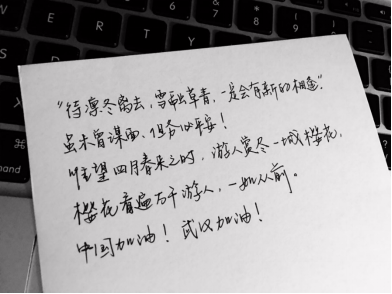 6
7
8
9
W
E
R
T
Y
U
S
⌘
mmand
"待凛冬离去，雪融草青，一定会有新的相逢"
虽未曾谋面，但务必平安！
唯望四月春来之时，游人赏尽一城樱花，
樱花看遍万千游人，一如从前。
中国加油！武汉加油！